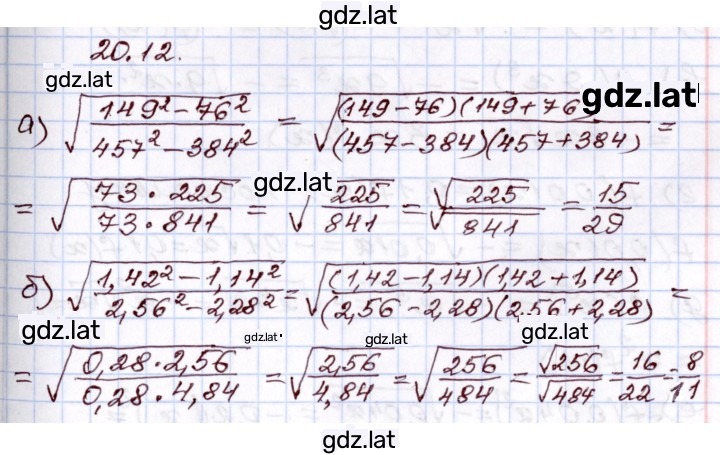 gdz.lat
20.12.
gdz.lat
а) √(149² - 76² / 457² - 384²) = √((149 - 76)(149 + 76 / (457 - 384)(457 + 384)) =
gdz.lat
= √(73 · 225 / 73 · 841) = √(225 / 841) = √225 / 841 = 15/29
gdz.lat
б) √(1,42² - 1,14² / 2,56² - 2,28²) = √((1,42 - 1,14)(1,42 + 1,14) / (2,56 - 2,28)(2,56 + 2,28)) =
gdz.lat gdz.lat gdz.lat
= √(0,28 · 2,56 / 0,28 · 4,84) = √(2,56 / 4,84) = √(256 / 484) = √256 / √484 = 16/22 = 8/11
gdz.lat